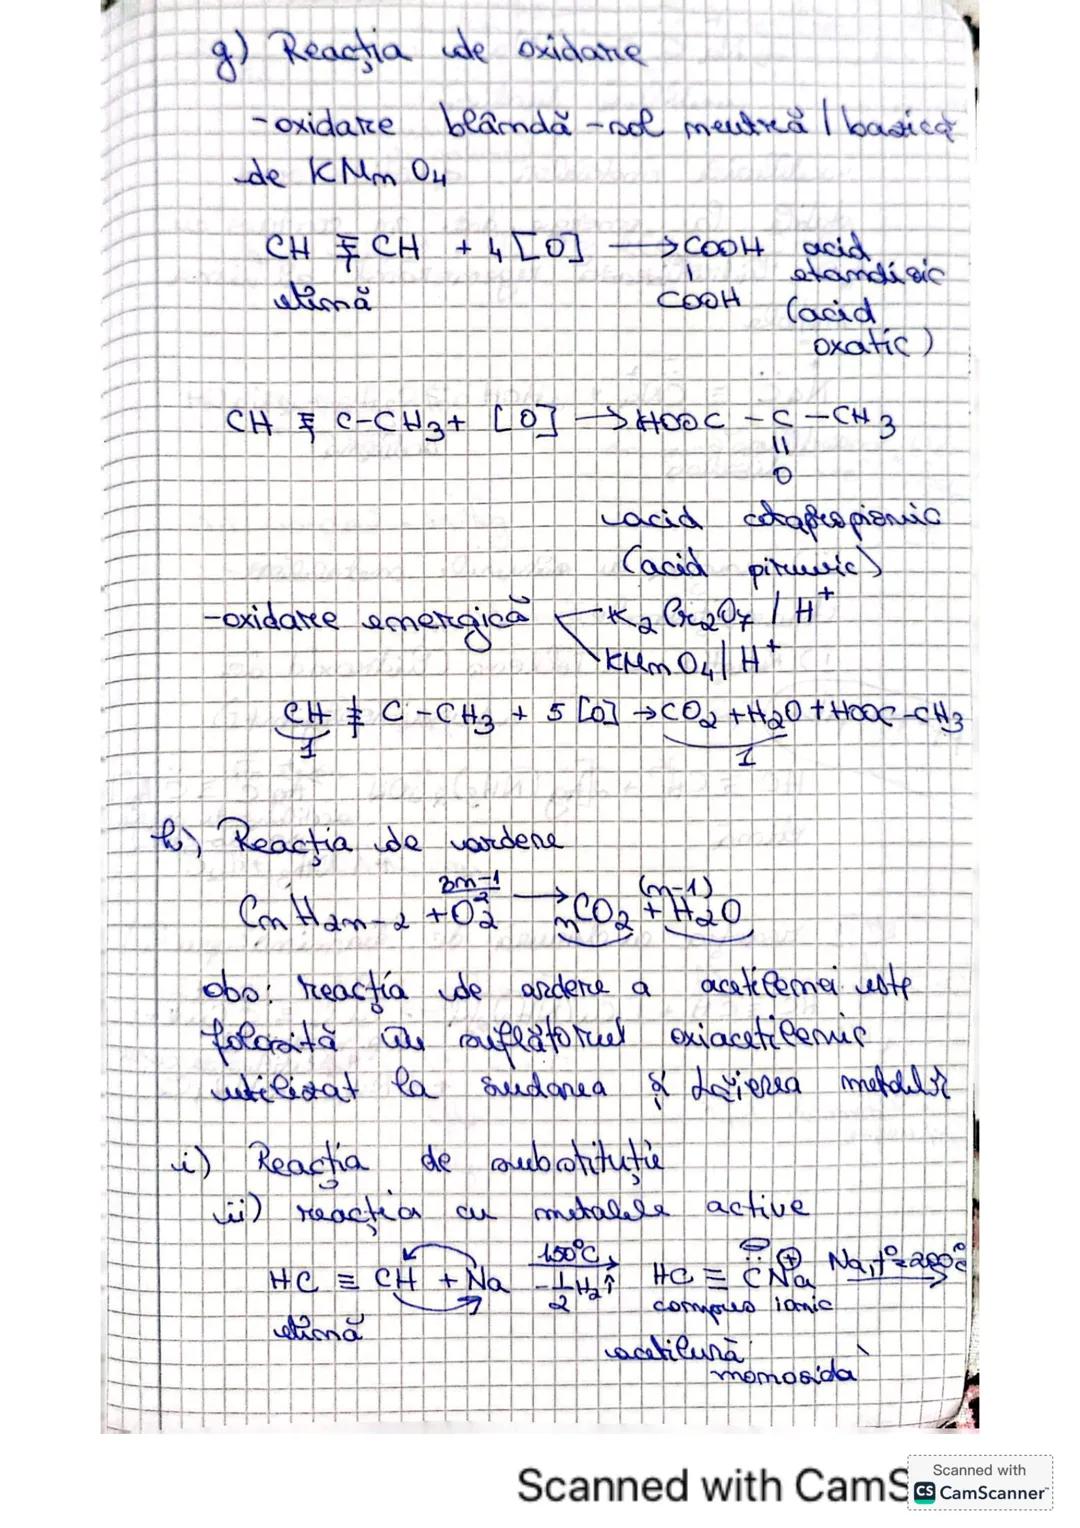 g) Reacția de oxidare
-oxidare blândă - sol neutră / bazică
de KMnO4
CH ≡ CH + 4 [O] → COOH acid
etandioic
etină COOH (acid
oxalic)
CH ≡ C-CH3 + [O] → HOOC - C - CH3
||
O
acid cetopropionic
(acid piruvic)
-oxidare energică K2Cr2O7 / H+
KMnO4 / H+
CH ≡ C - CH3 + 5 [O] → CO2 + H2O + HOOC-CH3
1 1
h) Reacția de ardere
CnH2n-2 + 3n-1/2 O2 → nCO2 + (n-1) H2O
obs: reacția de ardere a acetilenei este
folosită în suflătorul oxiacetilenic
utilizat la sudarea și tăierea metalelor
i) Reacția de substituție
ii) reacția cu metalele active
HC ≡ CH + Na 150°C → -1/2 H2↑ HC ≡ C:⊖ Na⊕ Na, t°=220°C →
compus ionic
etină
acetilură
monosoda
Scanned with CamS
Scanned with
CS CamScanner